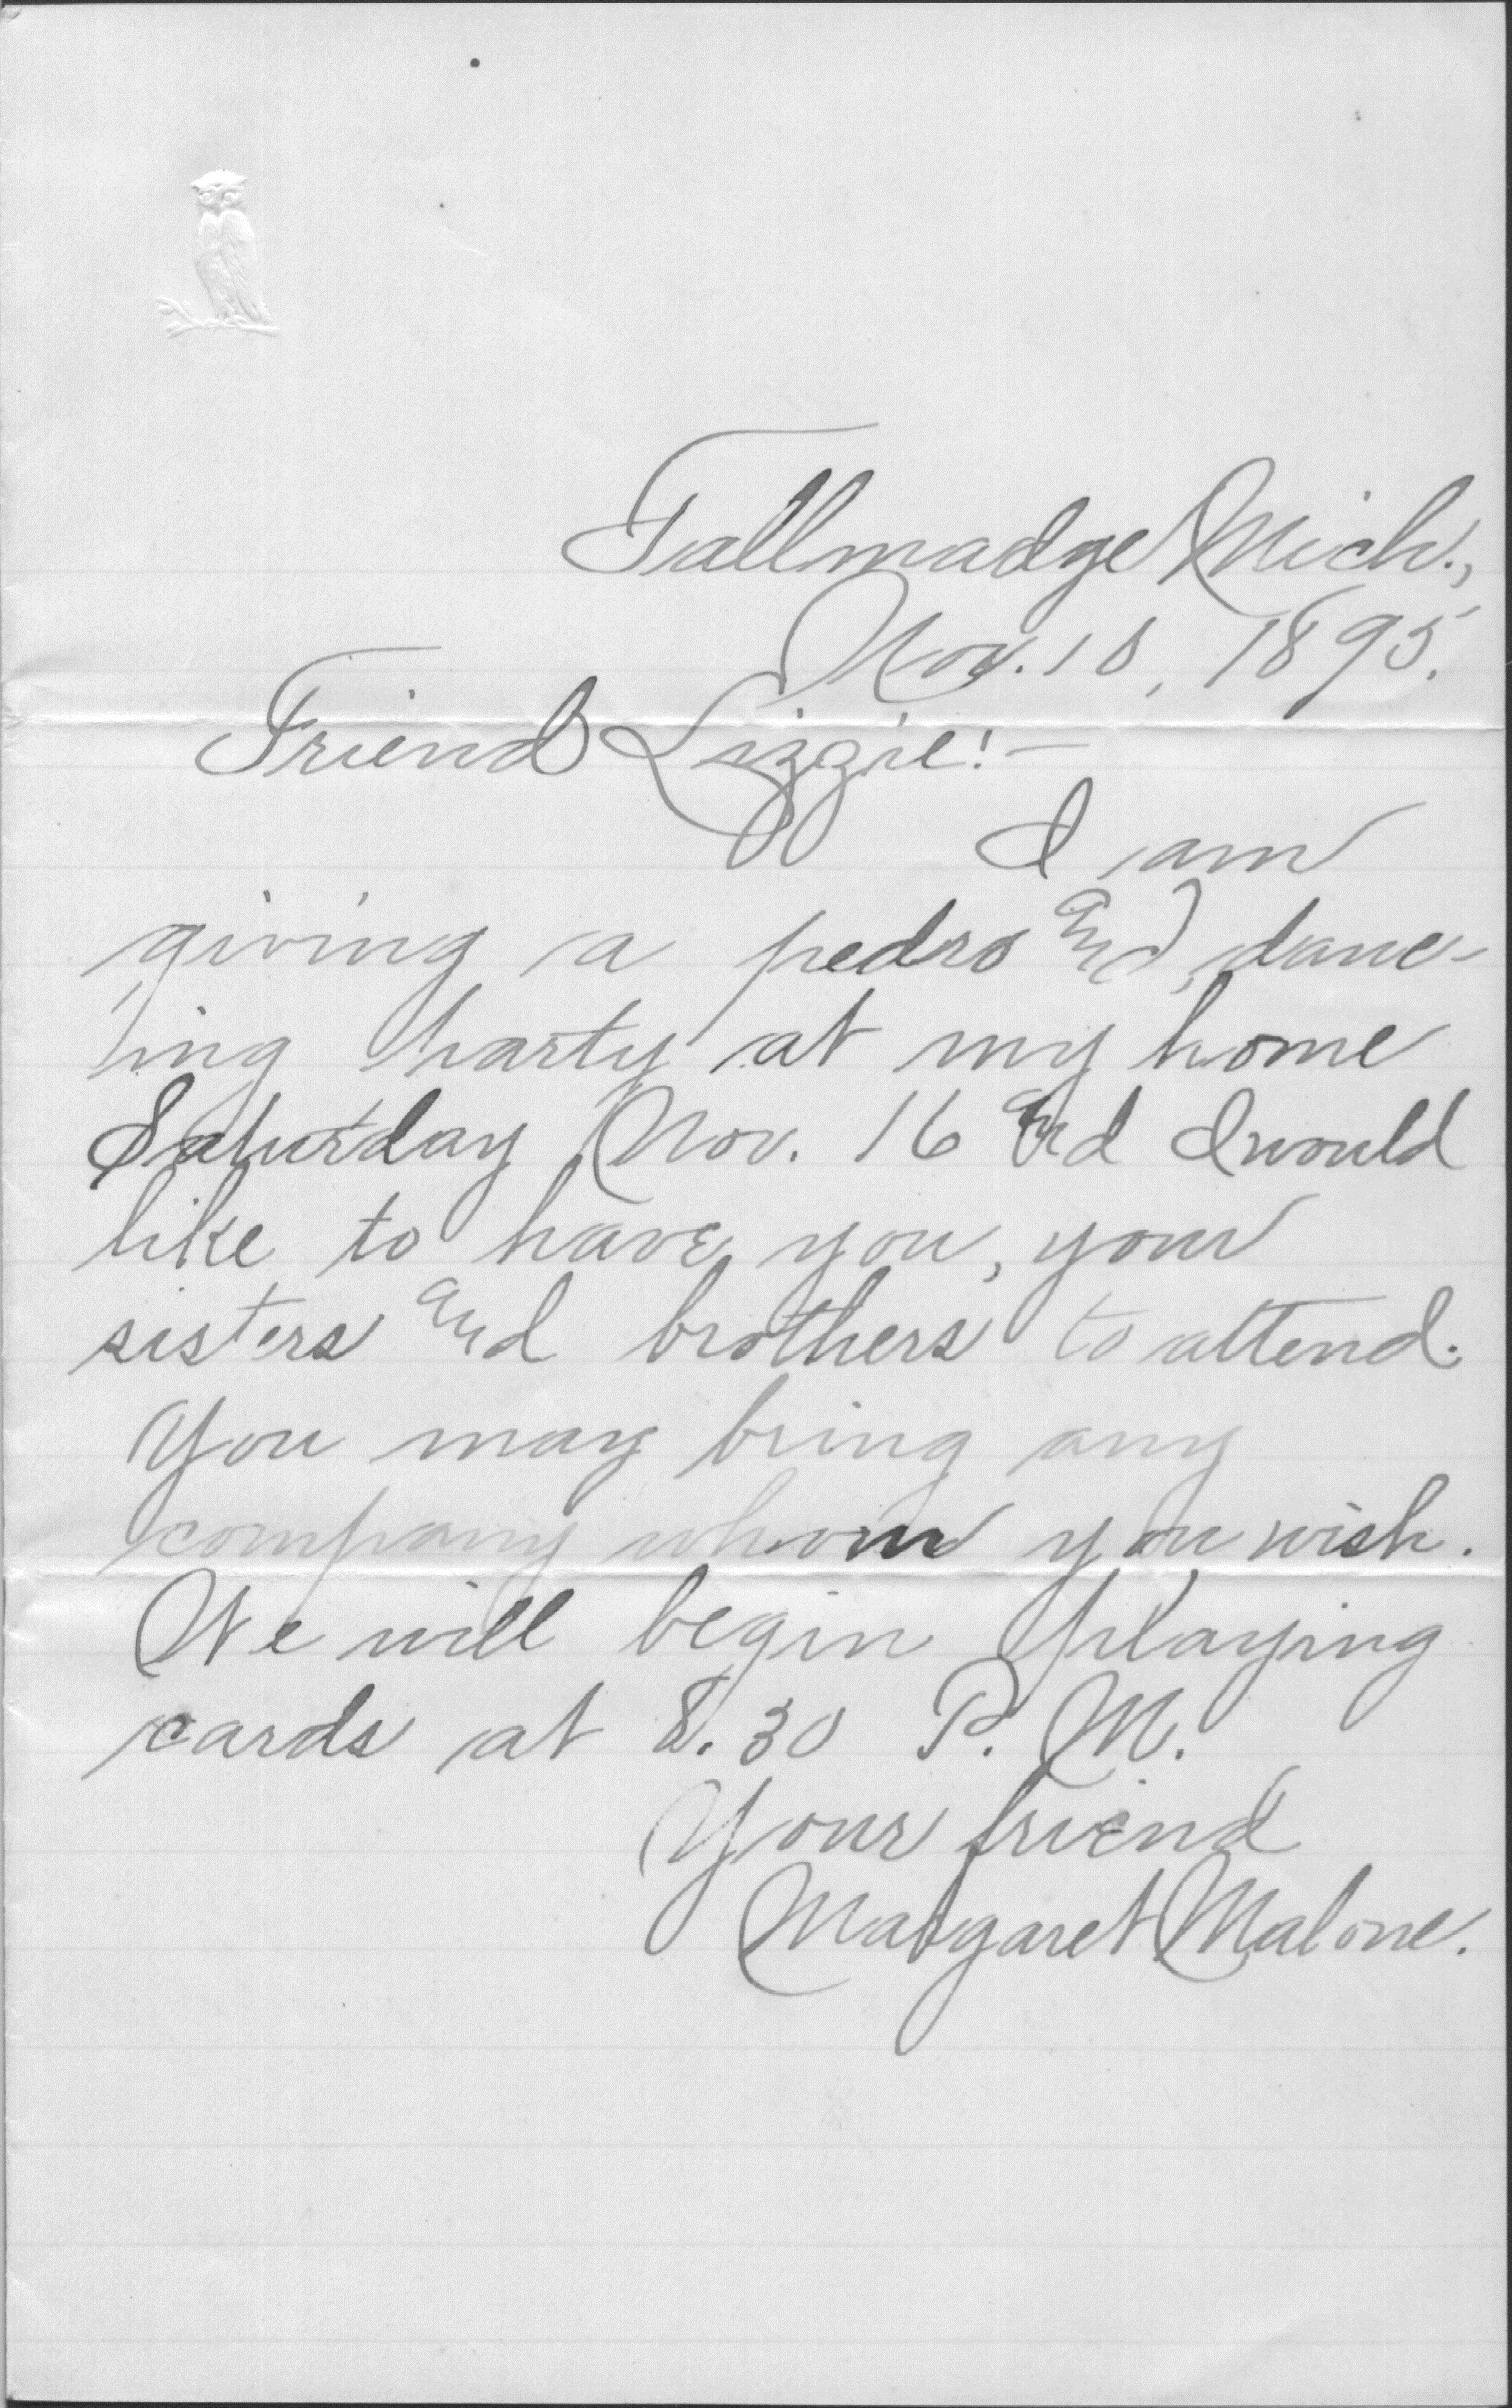 Tallmadge Mich.,
Nov. 10, 1895.
Friend Lizzie! —
I am
giving a pedro and danc-
ing party at my home
Saturday Nov. 16 and I would
like to have you, your
sisters and brothers to attend.
You may bring any
company whom you wish.
We will begin playing
cards at 8.30 P. M.
Your friend
Margaret Malone.